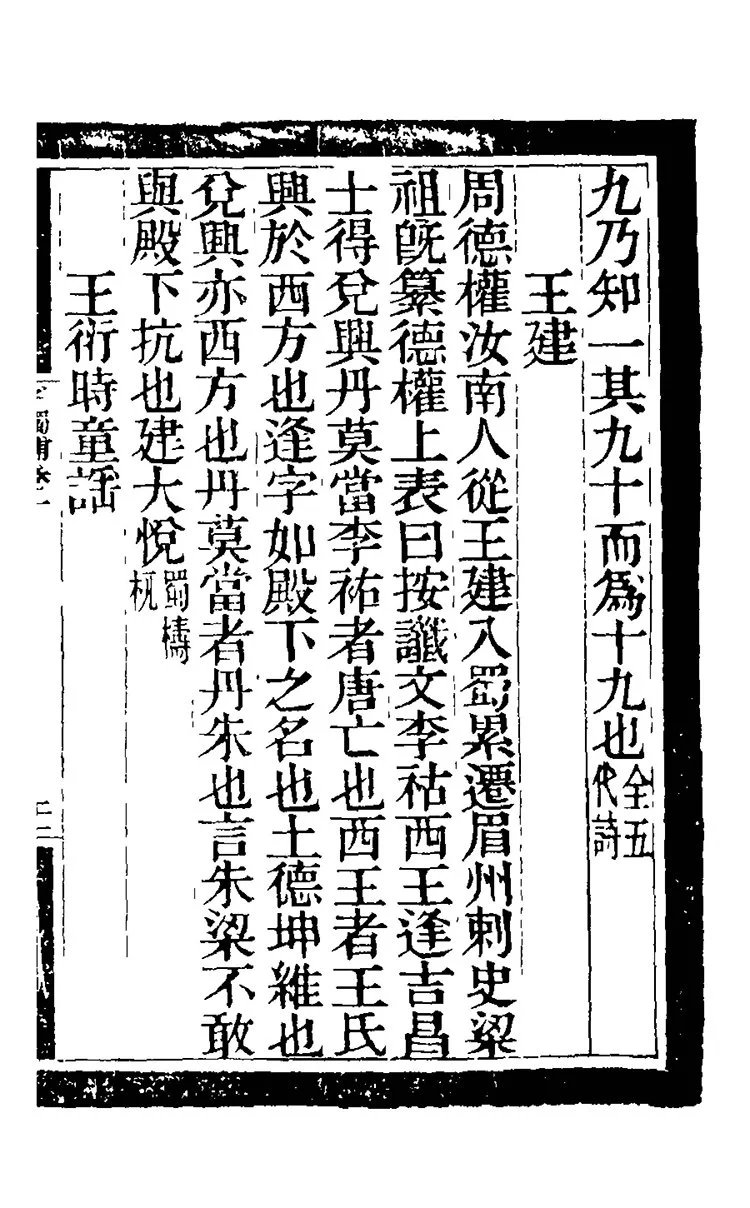 九乃知一其九十而爲十九也全五代詩
王建
周德權汝南人從王建入蜀累遷眉州刺史梁
祖旣纂德權上表曰按讖文李祜西王逢吉昌
士得兌興丹莫當李祐者唐亡也西王者王氏
興於西方也逢字如殿下之名也土德坤維也
兌興亦西方也丹莫當者丹朱也言朱梁不敢
與殿下抗也建大悅蜀檮杌
王衍時童謡